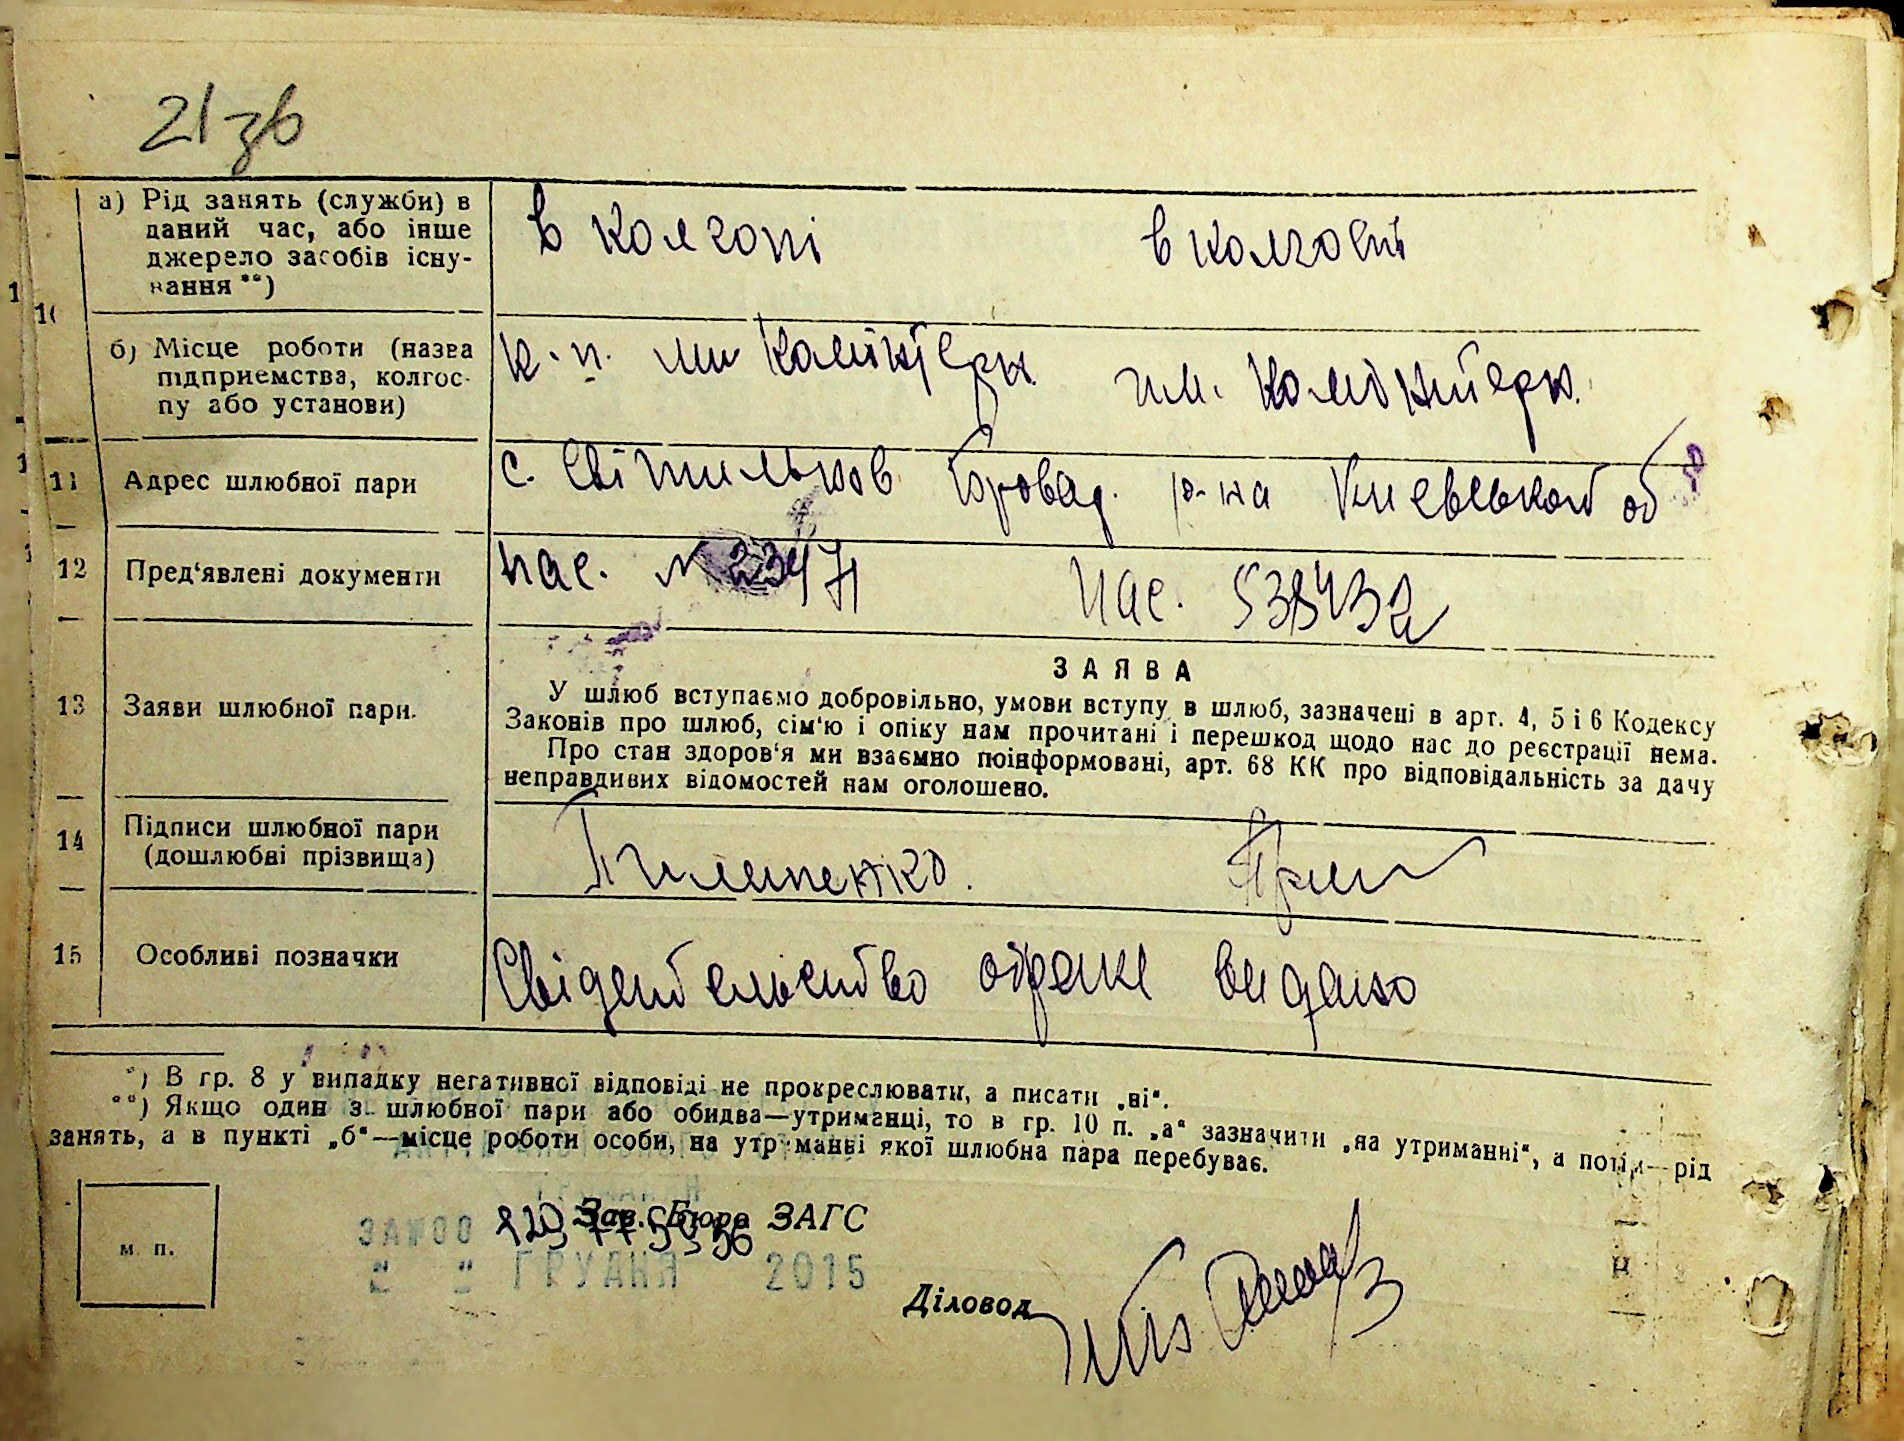 21 зв
а) Рід занять (служби) в
даний час, або інше
джерело засобів існу-
вання **)
в колгопі в колгоспі
10
б) Місце роботи (назва
підприємства, колгос-
пу або установи)
к.п. им Комінтерн им. Комінтерн.
11 Адрес шлюбної пари
с. Світильнов Бровар. р-на Киевськой об
12 Пред'явлені документи
пас. № 23471 пас. 538432
ЗАЯВА
13 Заяви шлюбної пари.
У шлюб вступаємо добровільно, умови вступу в шлюб, зазначені в арт. 4, 5 і 6 Кодексу
Законів про шлюб, сім'ю і опіку нам прочитані і перешкод щодо нас до реєстрації нема.
Про стан здоров'я ми взаємно поінформовані, арт. 68 КК про відповідальність за дачу
неправдивих відомостей нам оголошено.
14 Підписи шлюбної пари
(дошлюбні прізвища)
15 Особливі позначки
Свідетельство видано
*) В гр. 8 у випадку негативної відповіді не прокреслювати, а писати „ні“.
**) Якщо один з шлюбної пари або обидва—утриманці, то в гр. 10 п. „а“ зазначити „на утриманні“, а потім—рід
занять, а в пункті „б“—місце роботи особи, на утриманні якої шлюбна пара перебуває.
м. п.
Зав. Бюро ЗАГС
ГРУДНЯ 2015
Діловод